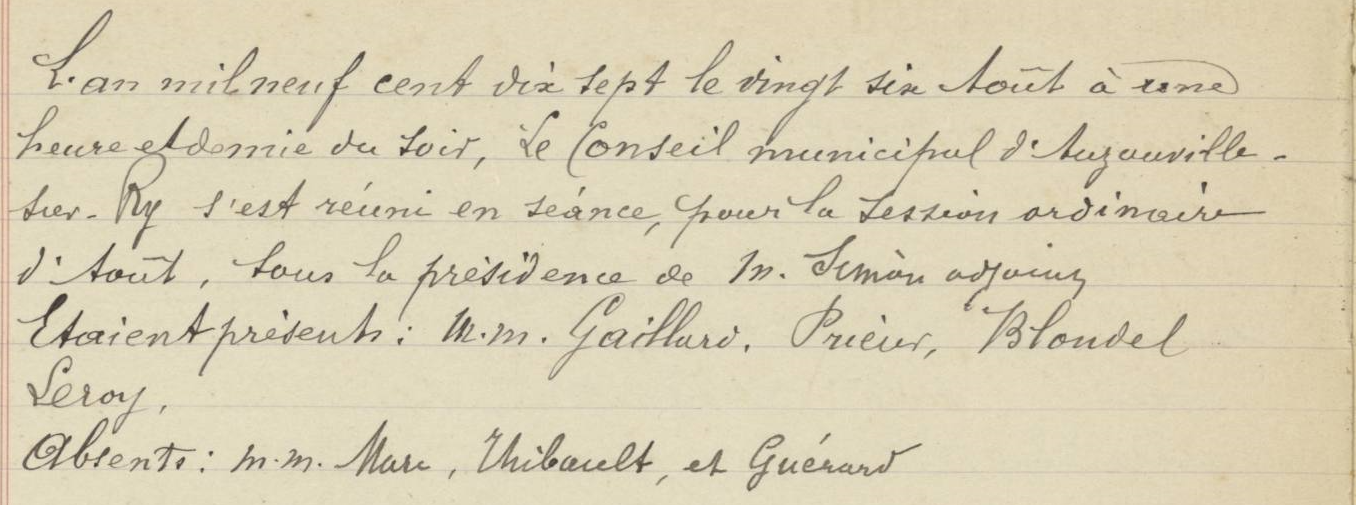 L'an mil neuf cent dix sept le vingt six Août à une
heure et demie du soir, Le Conseil municipal d'Auzouville-
sur-Ry s'est réuni en séance, pour la session ordinaire
d'Août, sous la présidence de M. Simon adjoint
Etaient présents : M.M. Gaillard, Prieur, Blondel
Leroy,
Absents : M.M. Marc, Thibault, et Guérard